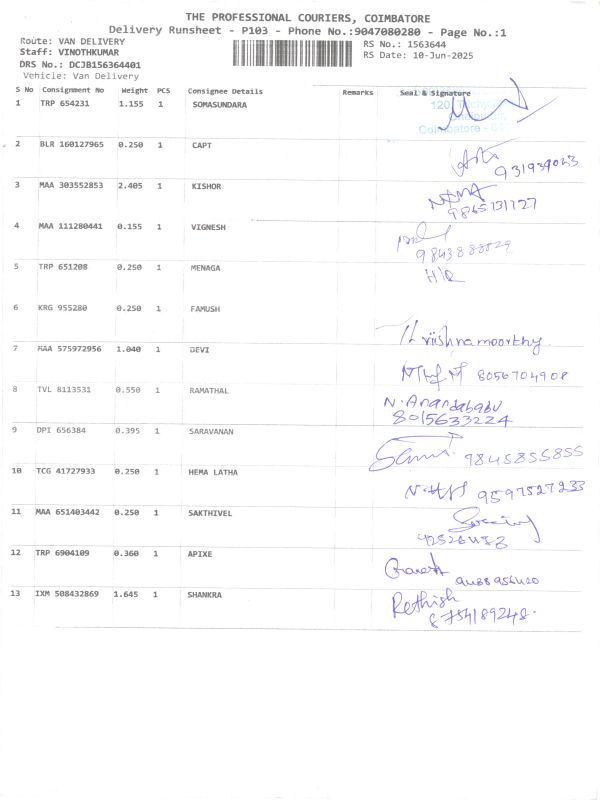 THE PROFESSIONAL COURIERS, COIMBATORE
Delivery Runsheet - P103 - Phone No.:9047080280 - Page No.:1
Route: VAN DELIVERY
Staff: VINOTHKUMAR
DRS No.: DCJB156364401
Vehicle: Van Delivery
RS No.: 1563644
RS Date: 10-Jun-2025
S No Consignment No Weight PCS Consignee Details Remarks Seal & Signature
1 TRP 654231 1.155 1 SOMASUNDARA
120,
Coimbatore -
2 BLR 160127965 0.250 1 CAPT
3 MAA 303552853 2.405 1 KISHOR
9865131727
4 MAA 111280441 0.155 1 VIGNESH
5 TRP 651208 0.250 1 MENAGA
6 KRG 955280 0.250 1 FAMUSH
7 MAA 575972956 1.040 1 DEVI
8056704908
8 TVL 8113531 0.550 1 RAMATHAL
N. Anandababu
8015633224
9 DPI 656384 0.395 1 SARAVANAN
9845855855
10 TCG 41727933 0.250 1 HEMA LATHA
9597527233
11 MAA 651403442 0.250 1 SAKTHIVEL
12 TRP 6904109 0.360 1 APIXE
13 IXM 508432869 1.645 1 SHANKRA
Rethish
8754189248.